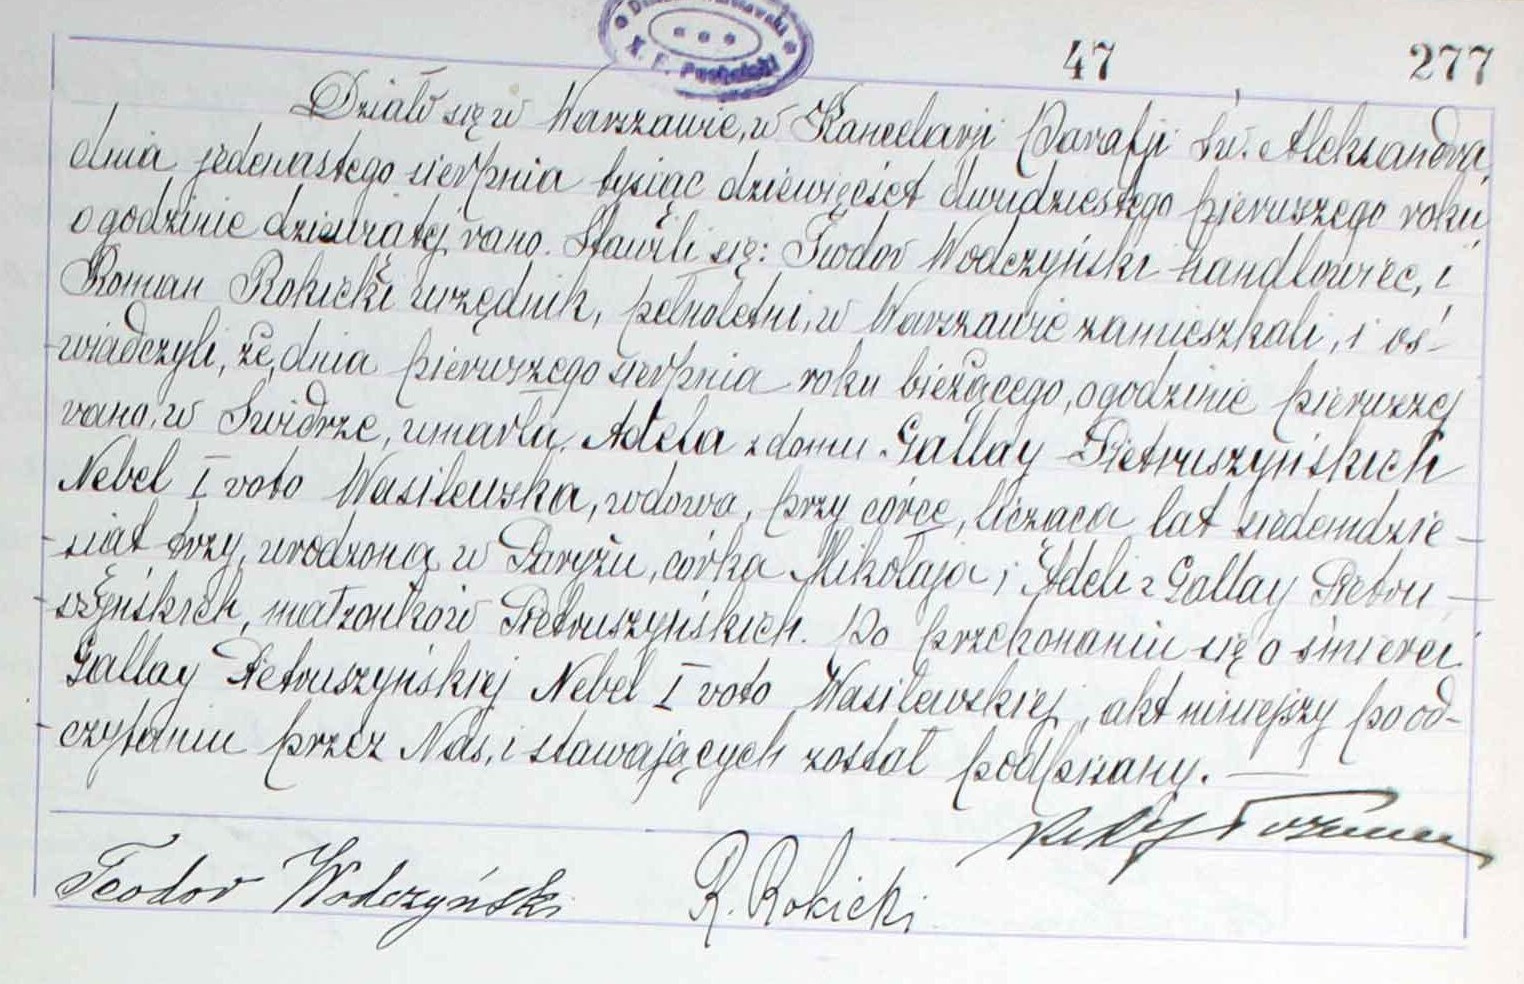 47 277
Działo się w Warszawie, w Kancelarji Parafji Św. Aleksandra,
dnia jedenastego sierpnia tysiąc dziewięćset dwudziestego pierwszego roku
o godzinie dziewiątej rano. Stawili się: Teodor Wodczyński handlowiec, i
Roman Rokicki urzędnik, pełnoletni, w Warszawie zamieszkali, i oś-
wiadczyli, że, dnia pierwszego sierpnia roku bieżącego, o godzinie pierwszej
rano, w Świdrze, umarła, Adela z domu Gallay Pietruszyńskich
Nebel I voto Wasilewska, wdowa, przy córce, licząca lat siedemdzie-
siąt trzy, urodzona w Paryżu, córka Mikołaja i Adeli z Gallay Pietru-
szyńskich, małżonków Pietruszyńskich. Po przekonaniu się o śmierci
Gallay Pietruszyńskiej Nebel I voto Wasilewskiej, akt niniejszy po od-
czytaniu przez Nas, i stawających został podpisany. —
Teodor Wodczyński R. Rokicki